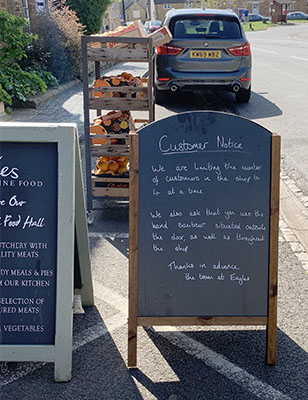 les
INE FOOD
e Our
Food Hall
UTCHERY WITH
LITY MEATS
DY MEALS & PIES
M OUR KITCHEN
SELECTION OF
URED MEATS
VEGETABLES
Customer Notice
We are limiting the number
of customers in the shop to
4 at a time
We also ask that you use the
hand sanitiser situated outside
the door, as well as throughout
the shop
Thanks in advance,
the team at Eagles
KW69 ZBE